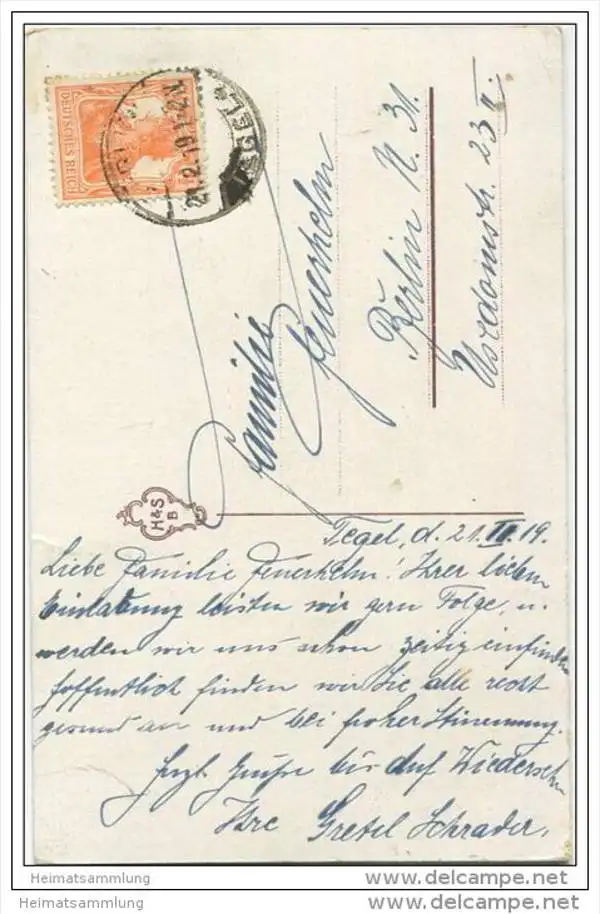 DEUTSCHES REICH
TEGEL
21.2.19.1-2N
Familie
Feuerhelm
Berlin N. 31.
Usedomstr. 23 II.
H&S
B
Tegel, d. 21. II. 19.
Liebe Familie Feuerhelm! Ihrer lieben
Einladung leisten wir gern Folge, u.
werden wir uns schon zeitig einfinden
Hoffentlich finden wir Sie alle recht
gesund an und bei froher Stimmung.
Herzl. Grüße bis auf Wiedersehn
Ihre Gretel Schrader.
Heimatsammlung
www.delcampe.net
Heimatsammlung
www.delcampe.net